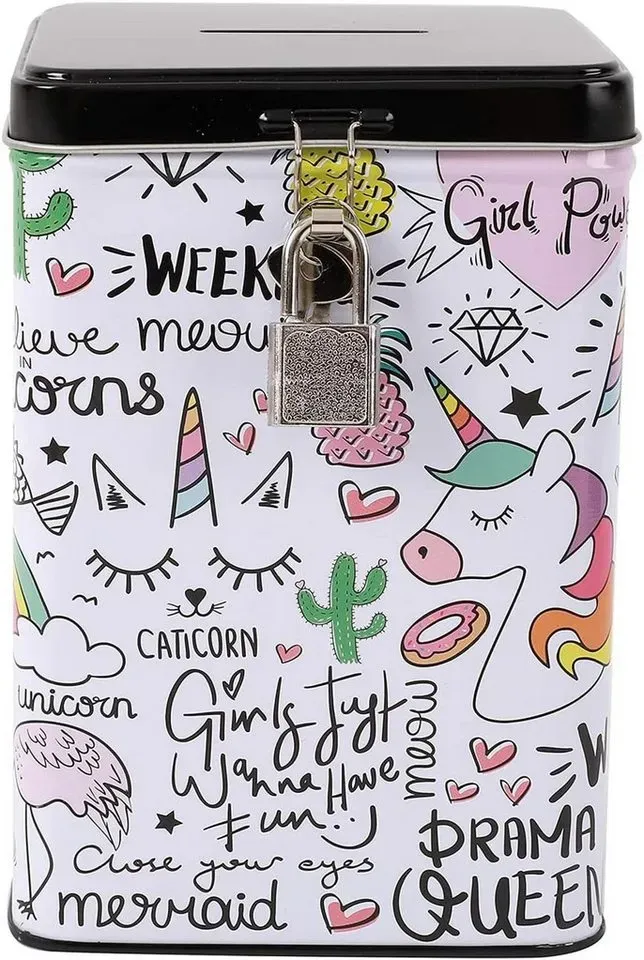 Girl Pow
WEEK
lieve meow
IN
corns
CATICORN
unicorn
Girls Just
Wanna Have
Fun
meow
W
DRAMA
QUEEN
Close your eyes
mermaid